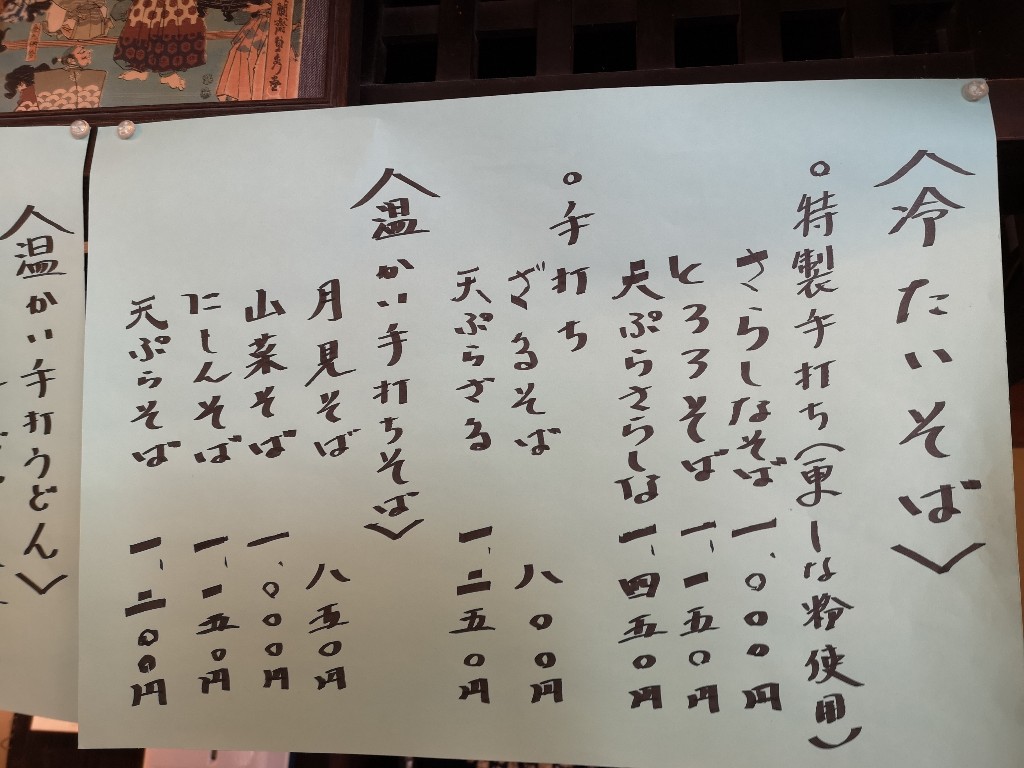 〈冷たいそば〉
○特製手打ち(更しな粉使用)
さらしなそば 一、〇〇〇円
とろろそば 一、一五〇円
天ぷらさらしな 一、四五〇円
○手打ち
ざるそば 八〇〇円
天ぷらざる 一、二五〇円
〈温かい手打ちそば〉
月見そば 八五〇円
山菜そば 一、〇〇〇円
にしんそば 一、一五〇円
天ぷらそば 一、二〇〇円
〈温かい手打うどん〉